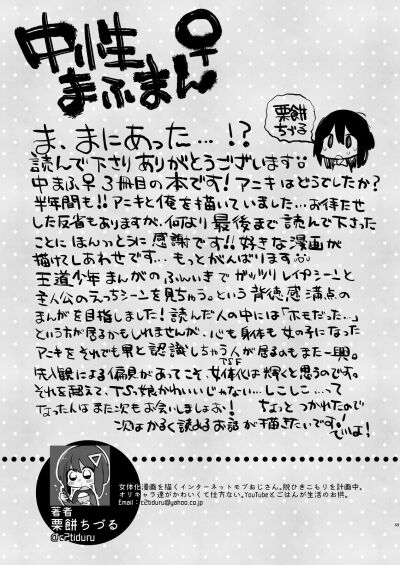 中性
まふまん♀
栗餅
ちづる
ま、まにあった…!?
読んで下さりありがとうございます。
中まふ♀3冊目の本です!アニキはどうでしたか?
半年間も!!アニキと俺を描いていました…お待たせ
した反省もありますが、何より最後まで読んで下さった
ことにほんっとうに感謝です!!好きな漫画が
描けてしあわせです…もっとがんばります
王道少年まんがのふんいきでガッツリレイプシーンと
主人公のえっちシーンを見ちゃう。という背徳感満点の
まんがを目指しました!読んだ人の中には「ホモだった…」
という方が居るかもしれませんが、心も身体も女の子になった
アニキをそれでも男と認識しちゃう人が居るのもまた一興。
先入観による偏見があってこそ、女体化は輝くと思うのです。
TSF
それを超えて、TSっ娘かわいいじゃない…しこしこ…って
なった人はまた次もお会いしましょお! ちょっとつかれたので
次はかるく読めるお話が描きたいです!
でいよ!
女体化漫画を描くインターネットモブおじさん。脱ひきこもりを計画中。
オリキャラ達がかわいくて仕方ない。YouTubeとごはんが生活のお供。
Email:c2tiduru@yahoo.co.jp
著者
栗餅ちづる
@c2tiduru